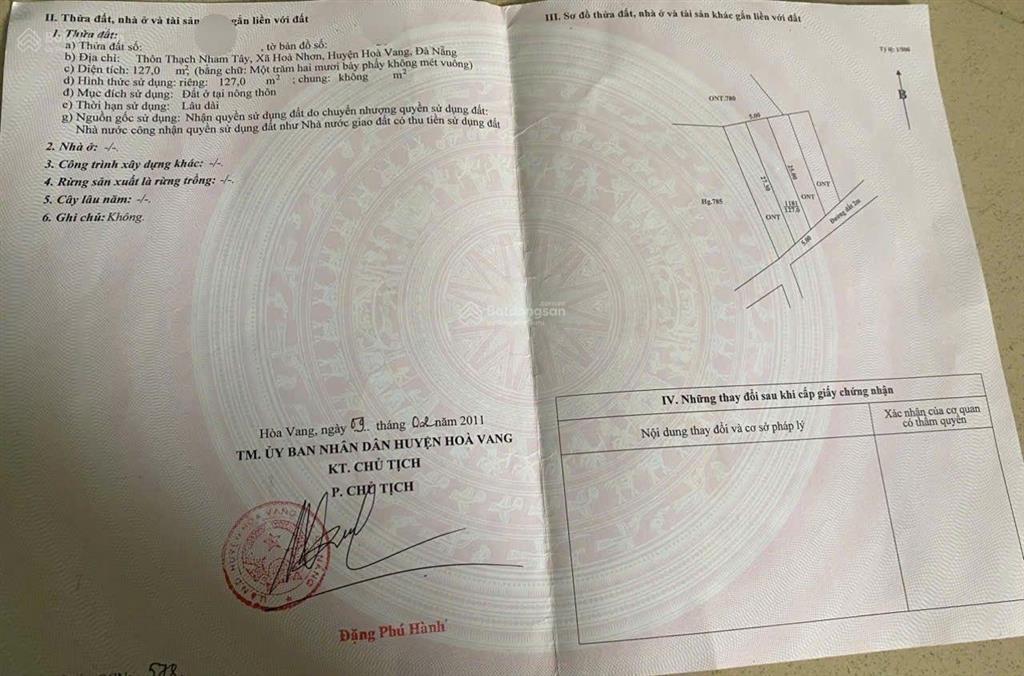 II. Thửa đất, nhà ở và tài sản gắn liền với đất
1. Thửa đất:
a) Thửa đất số: , tờ bản đồ số:
b) Địa chỉ: Thôn Thạch Nham Tây, Xã Hoà Nhơn, Huyện Hoà Vang, Đà Nẵng
c) Diện tích: 127,0 m², (bằng chữ: Một trăm hai mươi bảy phẩy không mét vuông)
d) Hình thức sử dụng: riêng: 127,0 m² ; chung: không m²
đ) Mục đích sử dụng: Đất ở tại nông thôn
e) Thời hạn sử dụng: Lâu dài
g) Nguồn gốc sử dụng: Nhận quyền sử dụng đất do chuyển nhượng quyền sử dụng đất:
Nhà nước công nhận quyền sử dụng đất như Nhà nước giao đất có thu tiền sử dụng đất
2. Nhà ở: -/-.
3. Công trình xây dựng khác: -/-.
4. Rừng sản xuất là rừng trồng: -/-.
5. Cây lâu năm: -/-.
6. Ghi chú: Không.
Hòa Vang, ngày 09 tháng 02 năm 2011
TM. ỦY BAN NHÂN DÂN HUYỆN HOÀ VANG
KT. CHỦ TỊCH
P. CHỦ TỊCH
Đặng Phú Hành
578
III. Sơ đồ thửa đất, nhà ở và tài sản khác gắn liền với đất
Tỷ lệ: 1/500
B
ONT.780
5.00
27.30
25.00
Hg.785
ONT
1181
127.0
ONT
ONT
5.00
Đường đất 2m
Batdongsan
IV. Những thay đổi sau khi cấp giấy chứng nhận
Nội dung thay đổi và cơ sở pháp lý
Xác nhận của cơ quan
có thẩm quyền